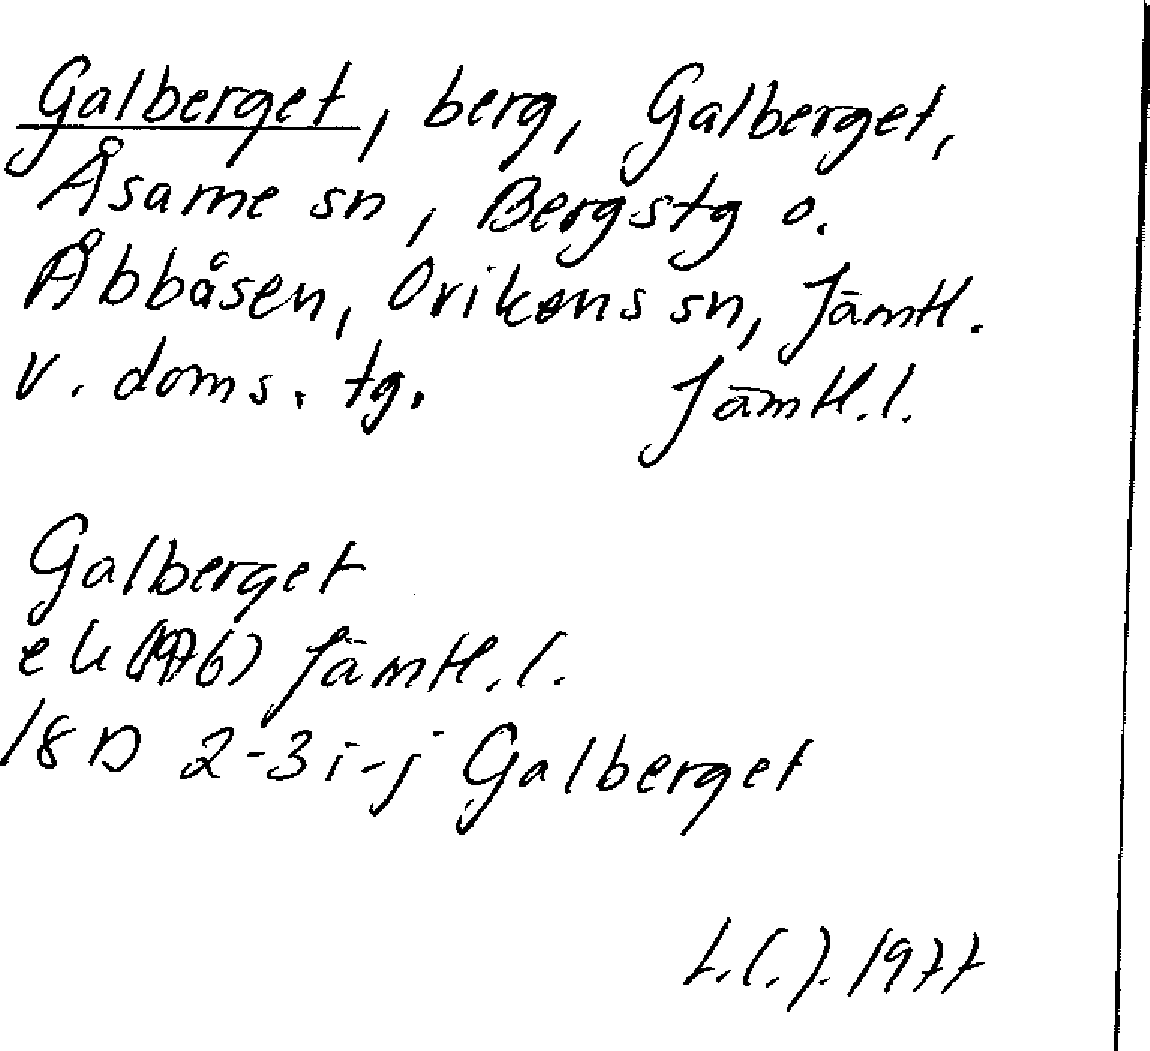 Galberget, berg, Galberget,
Åsarne sn, Bergs tg o.
Åbbåsen, Ovikens sn, Jämtl.
v. doms. tg. Jämtl. l.
Galberget
ek (1976) Jämtl. l.
18D 2-3 i-j Galberget
1977